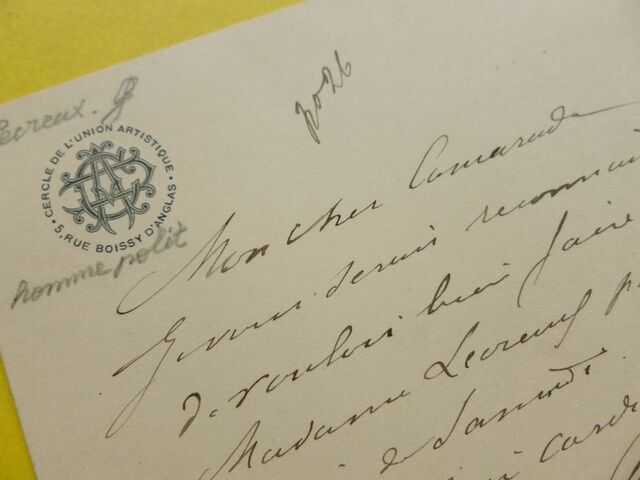 Lecreux. G
CERCLE DE L'UNION ARTISTIQUE
5, RUE BOISSY D'ANGLAS
homme polit
Mon cher Camarade
Je vous serais reconnai
de vouloir bien faire
Madame Lecreux p
de Samedi